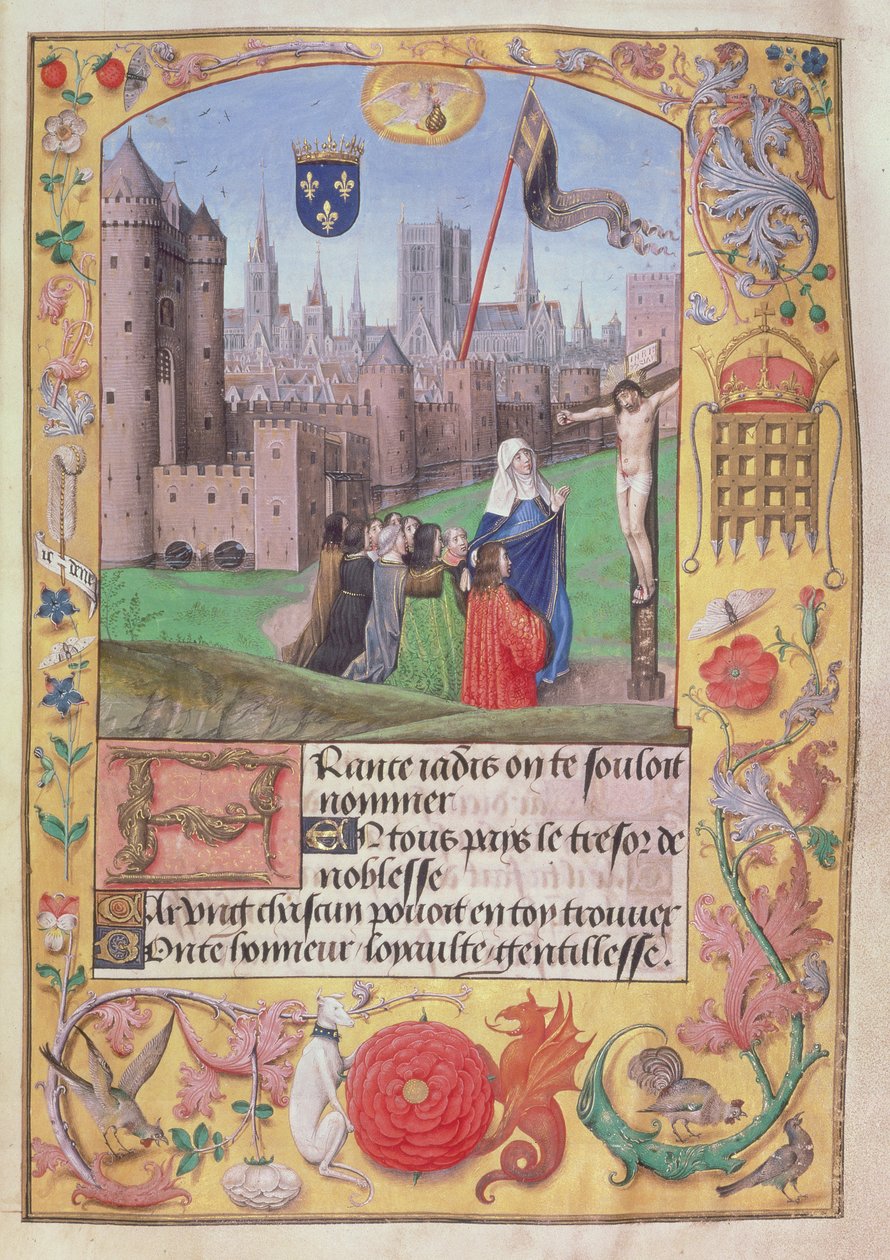 France iadis on te souloit
nommer
En tous pays le tresor de
noblesse
Car vng chascun pouoit en toy trouuer
Bonte honneur / loyaulte / gentillesse.
ic dene